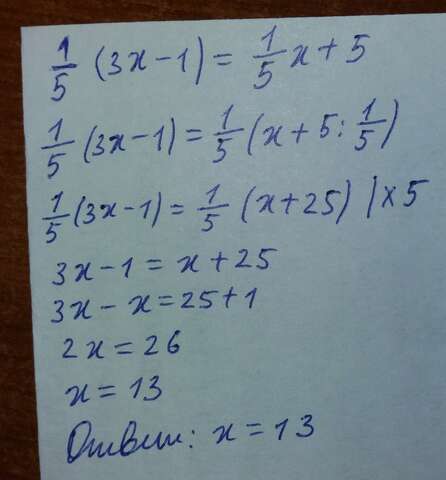 1/5 (3x-1) = 1/5 x + 5
1/5 (3x-1) = 1/5 (x + 5 : 1/5)
1/5 (3x-1) = 1/5 (x+25) | × 5
3x-1 = x + 25
3x - x = 25+1
2x = 26
x = 13
Ответ: x = 13